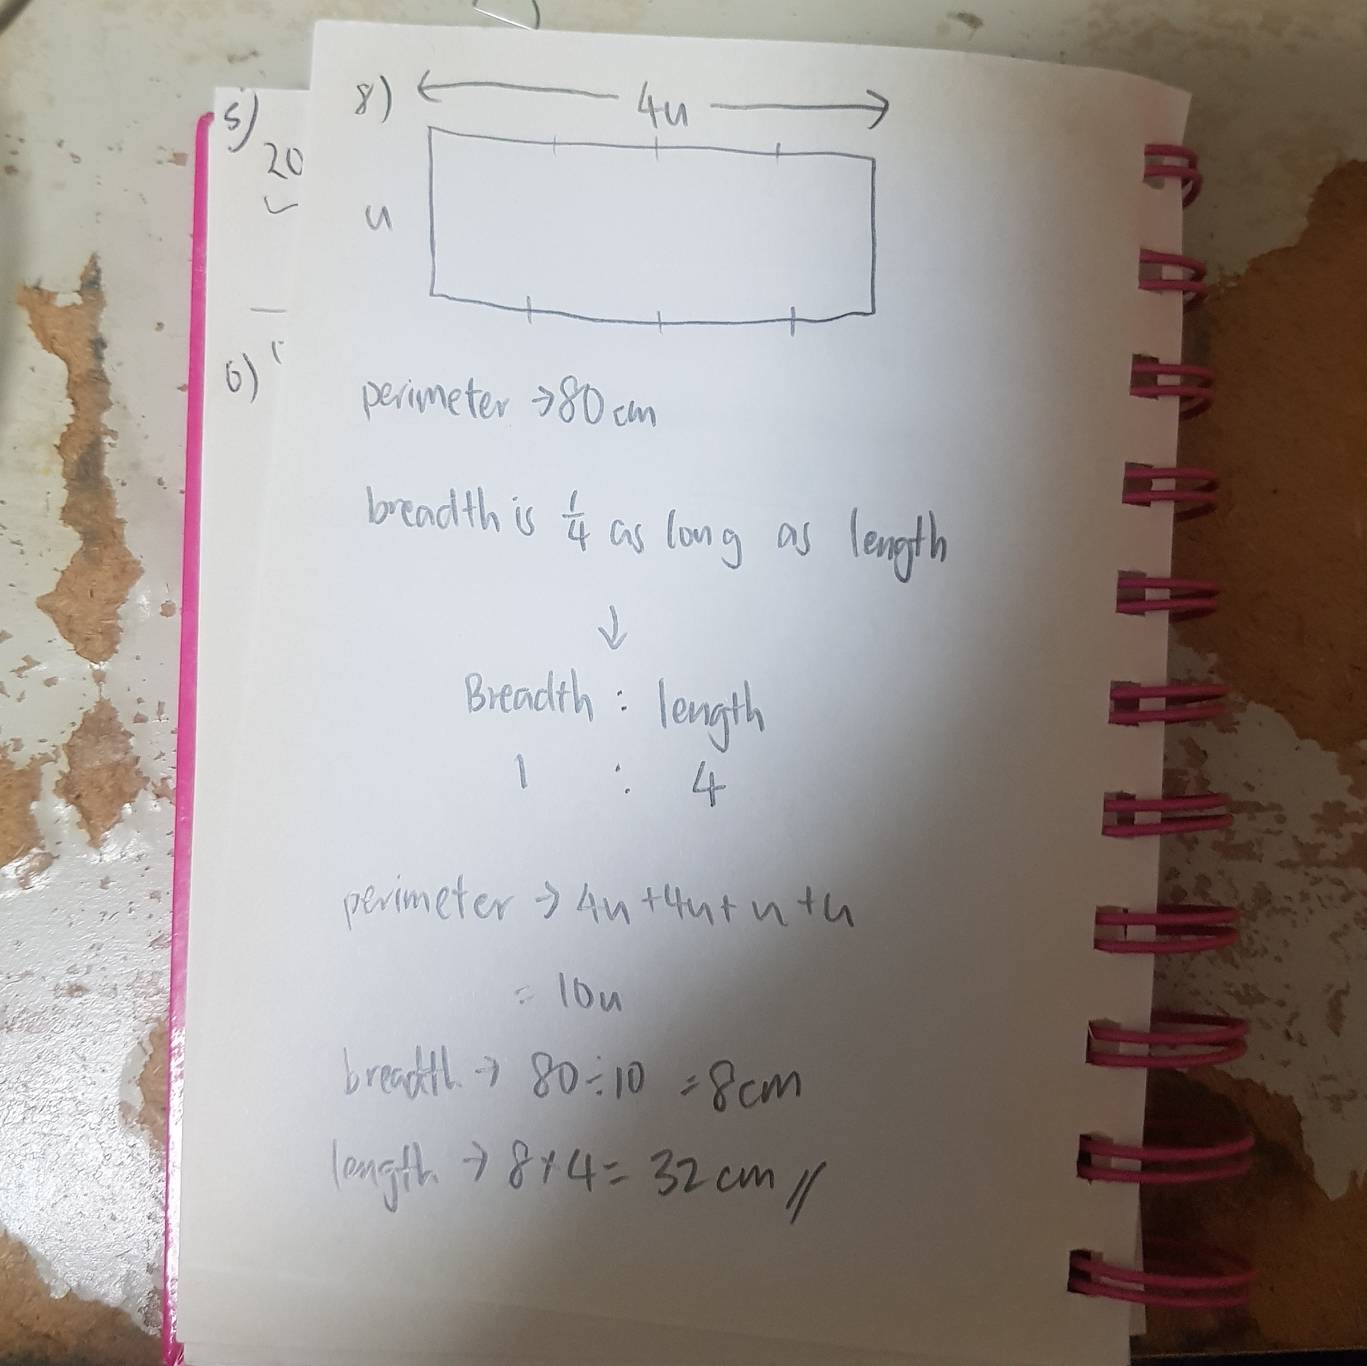 5)
20
6)
8)
4u
u
perimeter → 80 cm
breadth is 1/4 as long as length
↓
Breadth : length
1 : 4
perimeter → 4u + 4u + u + u
= 10u
breadth → 80 ÷ 10 = 8cm
length → 8 × 4 = 32 cm //